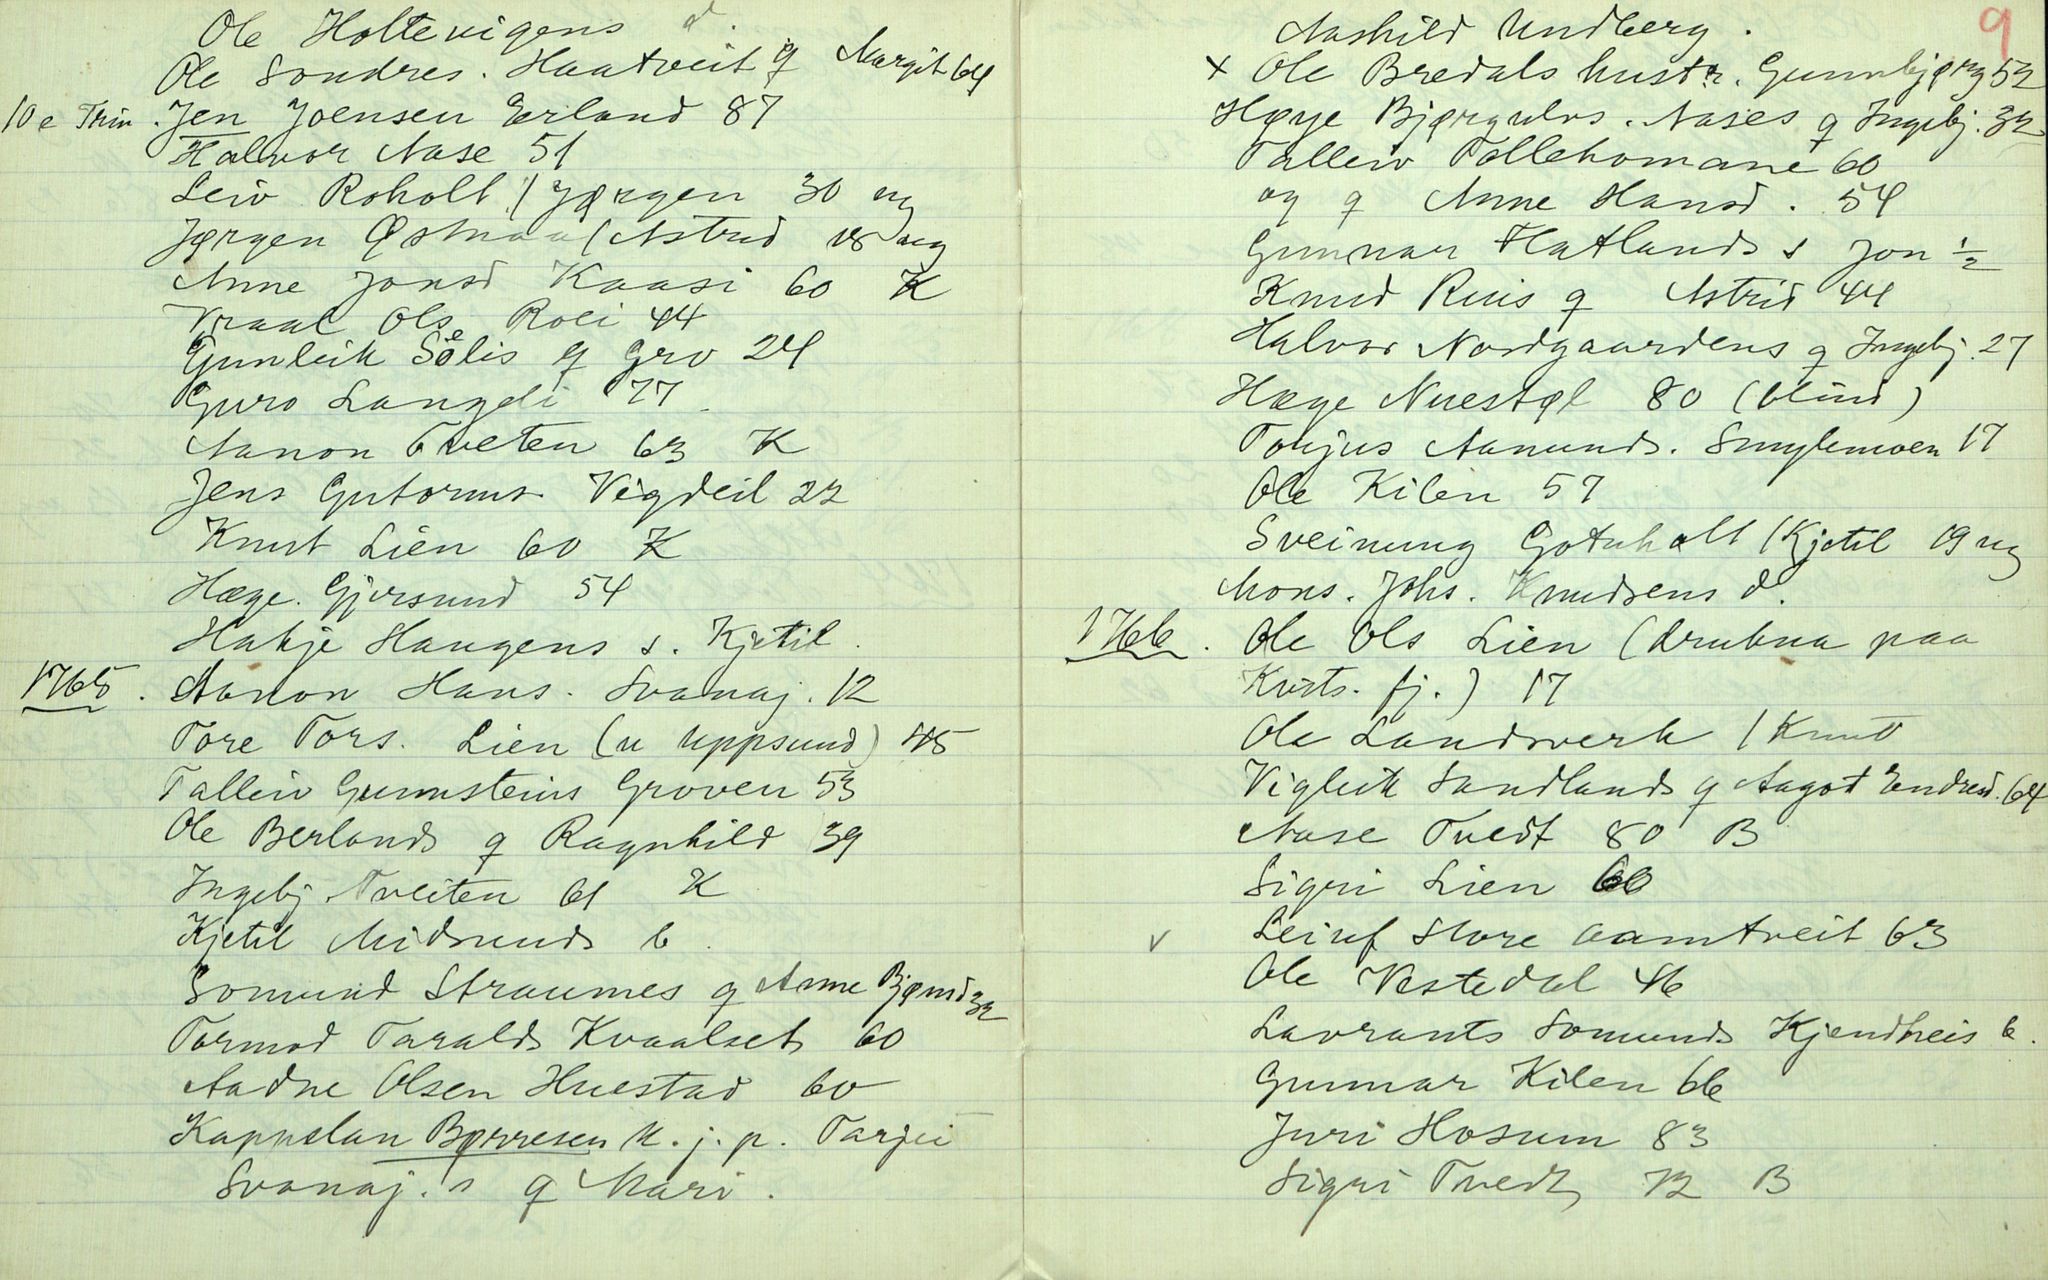 Ole Holtevigens d.
Ole Sondres. Haatveit q Margit 64
10 e Trin. Jen Joensen Erland 87
Halvor Aase 51
Leiv Roholt / Jørgen 30 ug
Jørgen Østnaa / Astrid 18 ug
Anne Jonsd Kaasi 60 K
Vraal Ols Roei 44
Gunleik Sølis q Gro 24
Guro Langeli 77
Aanon Tveten 63 K
Jens Gutorms. Vigdeil 22
Knut Lien 60 K
Hæge. Gjersund 54
Hakje Haugens s. Kjetil.
1765. Aanon Hans. Svanaj. 12
Tore Tors. Lien (u Uppsund) 45
Talleiv Gunnsteins Groven 53
Ole Berlands q Ragnhild 39
Ingebj. Tveiten 61 K
Kjetil Midsunds 6
Somund Straumes q Anne Bjørnsd 32
Tormod Taralds Kvaalset 60
Aadne Olsen Huestad 60
Kappelan Børresen K. j. p. Tarjei
Svanaj. s q Mari.
9
Aashild Undberg.
x Ole Bredals hustr. Gunnbjørg 52
Høye Bjørgulvs. Aases q Ingebj. 32
Talleiv Tollehomane 60
og q Anne Hansd. 54
Gunnar Flatlands s Jon ½
Knud Ruis q Astrid 44
Halvor Nordgaardens q Ingebj. 27
Hæge Nuestøl 80 (blind)
Torjus Aamunds. Smylemoen 17
Ole Kilen 57
Sveinung Gotuholt / Kjetil 19 ug
Mons. Johs. Knudsens d.
1766. Ole Ols Lien (drukna paa
Krists. fj.) 17
Ole Landsverk / Knut
Vigleik Sandlands q Aagot Endresd. 64
Aase Tvedt 80 B
Sigri Lien 60
v Leiuf Store Aamtveit 63
Ole Vestedal 46
Lavrants Somunds Kjendheis 6.
Gunnar Kilen 66
Juri Hosum 83
Sigri Tvedt 72 B